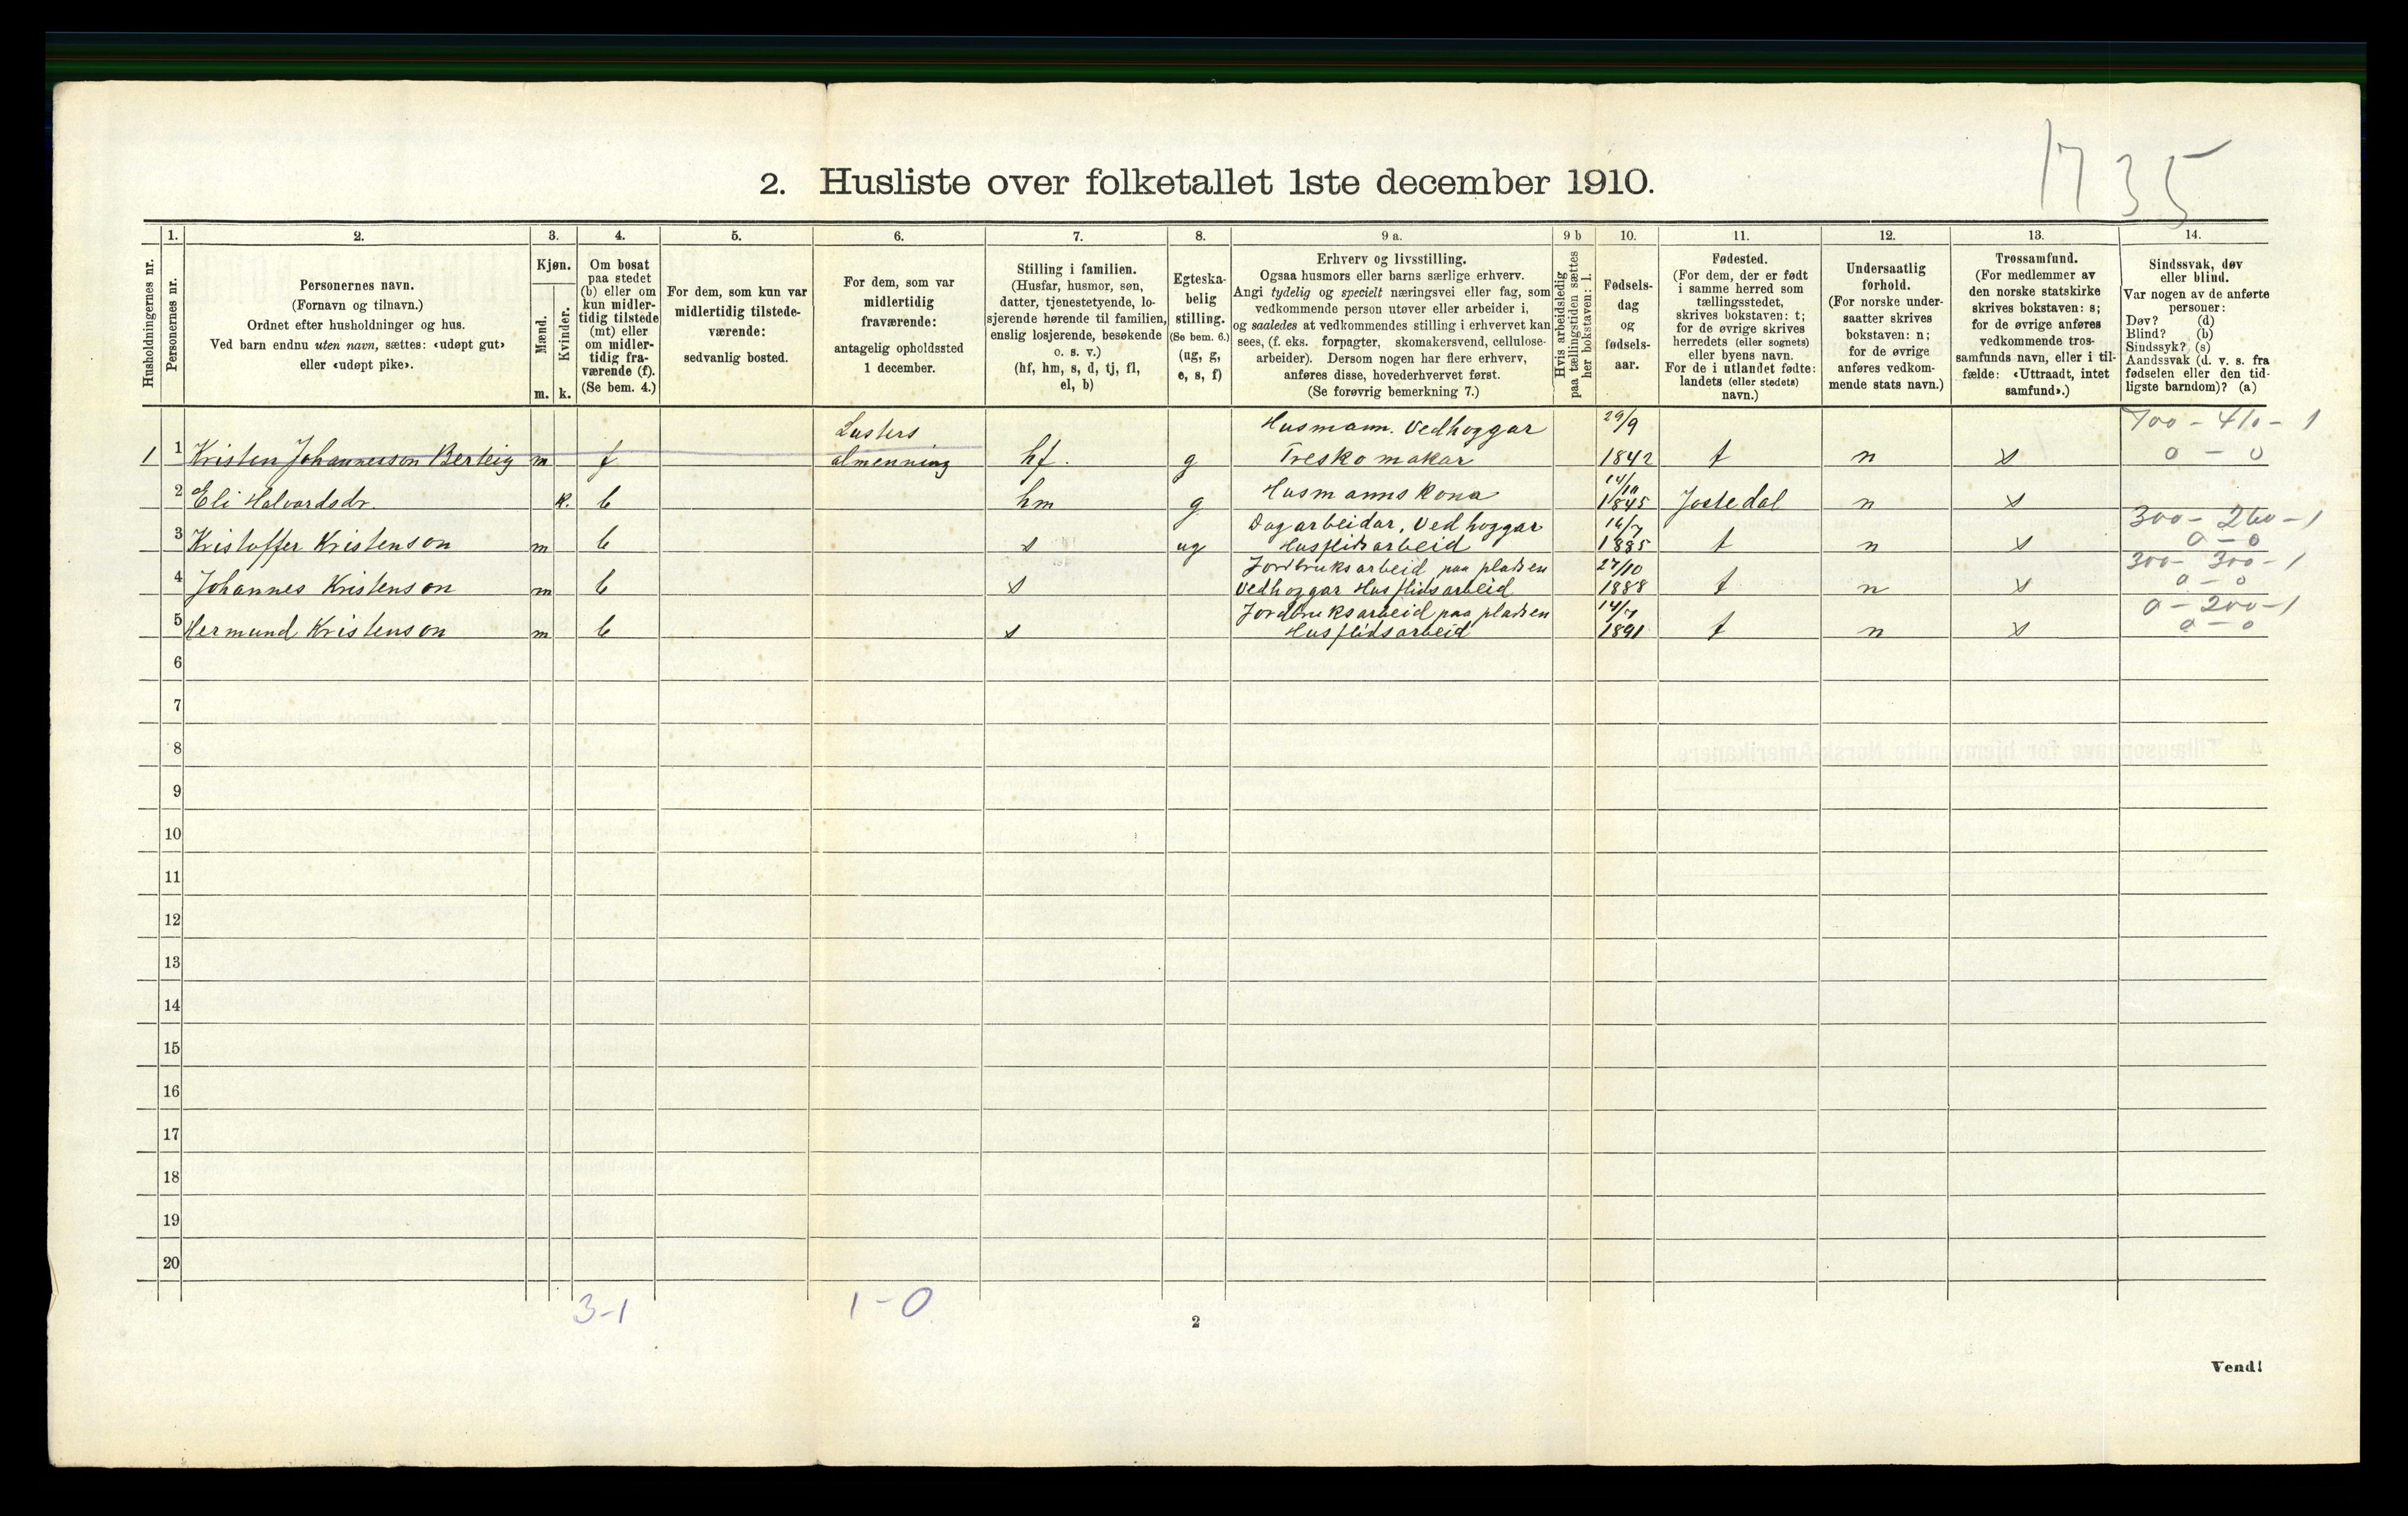 1735
2. Husliste over folketallet 1ste december 1910.
Husholdningernes nr.
1.
Personernes nr.
2.
Personernes navn.
(Fornavn og tilnavn.)
Ordnet efter husholdninger og hus.
Ved barn endnu uten navn, sættes: «udøpt gut»
eller «udøpt pike».
3.
Kjøn.
Mænd.
m.
Kvinder.
k.
4.
Om bosat
paa stedet
(b) eller om
kun midler-
tidig tilstede
(mt) eller
om midler-
tidig fra-
værende (f).
(Se bem. 4.)
5.
For dem, som kun var
midlertidig tilstede-
værende:
sedvanlig bosted.
6.
For dem, som var
midlertidig
fraværende:
antagelig opholdssted
1 december.
7.
Stilling i familien.
(Husfar, husmor, søn,
datter, tjenestetyende, lo-
sjerende hørende til familien,
enslig losjerende, besøkende
o. s. v.)
(hf, hm, s, d, tj, fl,
el, b)
8.
Egteska-
belig
stilling.
(Se bem. 6.)
(ug, g,
e, s, f)
9 a.
Erhverv og livsstilling.
Ogsaa husmors eller barns særlige erhverv.
Angi tydelig og specielt næringsvei eller fag, som
vedkommende person utøver eller arbeider i,
og saaledes at vedkommendes stilling i erhvervet kan
sees, (f. eks. forpagter, skomakersvend, cellulose-
arbeider). Dersom nogen har flere erhverv,
anføres disse, hovederhvervet først.
(Se forøvrig bemerkning 7.)
9 b
Hvis arbeidsledig
paa tællingstiden sættes
her bokstaven: l.
10.
Fødsels-
dag
og
fødsels-
aar.
11.
Fødested.
(For dem, der er født
i samme herred som
tællingsstedet,
skrives bokstaven: t;
for de øvrige skrives
herredets (eller sognets)
eller byens navn.
For de i utlandet fødte:
landets (eller stedets)
navn.)
12.
Undersaatlig
forhold.
(For norske under-
saatter skrives
bokstaven: n;
for de øvrige
anføres vedkom-
mende stats navn.)
13.
Trossamfund.
(For medlemmer av
den norske statskirke
skrives bokstaven: s;
for de øvrige anføres
vedkommende tros-
samfunds navn, eller i til-
fælde: «Uttraadt, intet
samfund».)
14.
Sindssvak, døv
eller blind.
Var nogen av de anførte
personer:
Døv? (d)
Blind? (b)
Sindssyk? (s)
Aandssvak (d. v. s. fra
fødselen eller den tid-
ligste barndom)? (a)
Lusters Husmann. Vedhoggar 29/9 700 - 410 - 1
1 1 Kristen Johannesson Berteig m f almenning hf. g Treskomakar 1842 t n s 0 - 0
14/10
2 Eli Halvardsdr. k. b hm g Husmannskona 1845 Jostedal n s
Dagarbeidar, Vedhoggar 16/7 300 - 260 - 1
3 Kristoffer Kristenson m b s ug Husflidsarbeid 1885 t n s 0 - 0
Jordbruksarbeid paa pladsen 27/10 300 - 300 - 1
4 Johannes Kristenson m b s Vedhoggar Husflidsarbeid 1888 t n s 0 - 0
Jordbruksarbeid paa pladsen 14/7 0 - 200 - 1
5 Hermund Kristenson m b s Husflidsarbeid 1891 t n s 0 - 0
6
7
8
9
10
11
12
13
14
15
16
17
18
19
20
3-1 1-0
2
Vend!